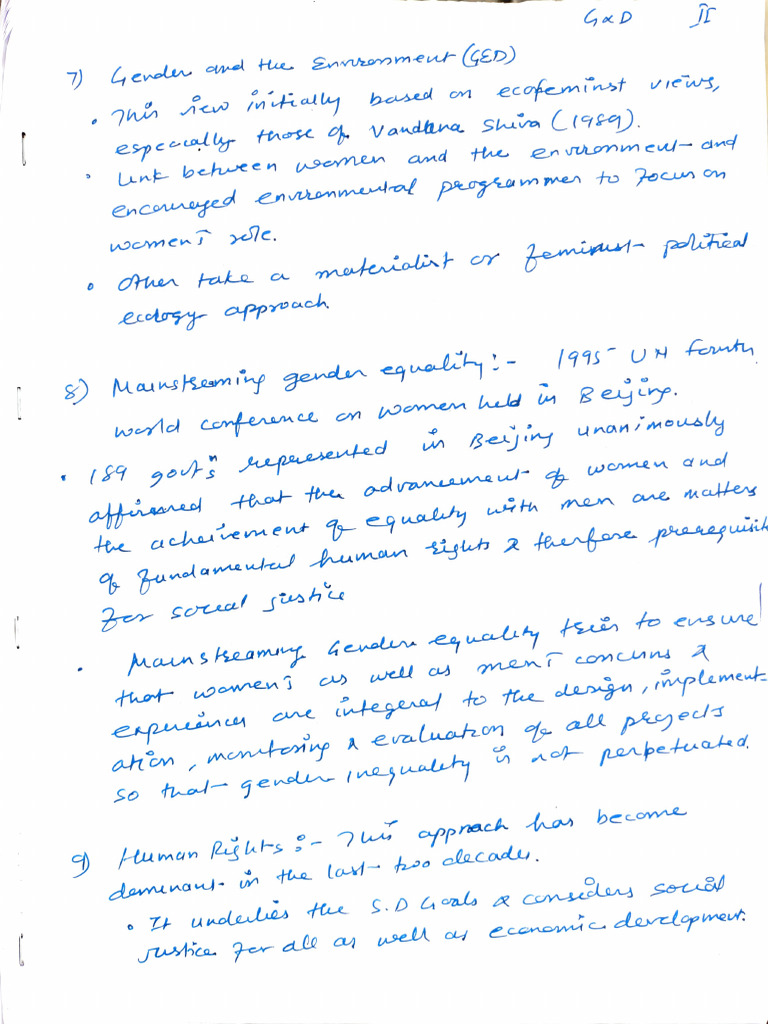 G&D II
7) Gender and the Environment (GED)
• This view initially based on ecofeminst views,
especially those of Vandana Shiva (1989).
• Link between women and the environment and
encouraged environmental programmes to focus on
women's role.
• Other take a materialist or feminist political
ecology approach.
8) Mainstreaming gender equality:- 1995 UN fourth
world conference on women held in Beijing.
• 189 govts represented in Beijing unanimously
affirmed that the advancement of women and
the acheivement of equality with men are matters
of fundamental human rights & therefore prerequisite
for social justice
• Mainstreaming Gender equality tries to ensure
that women's as well as men's concerns &
experiences are integeral to the design, implement-
ation, monitoring & evaluation of all projects
so that gender inequality is not perpetuated.
9) Human Rights:- This approach has become
dominant in the last two decades.
• It underlies the S.D Goals & considers social
justice for all as well as economic development.